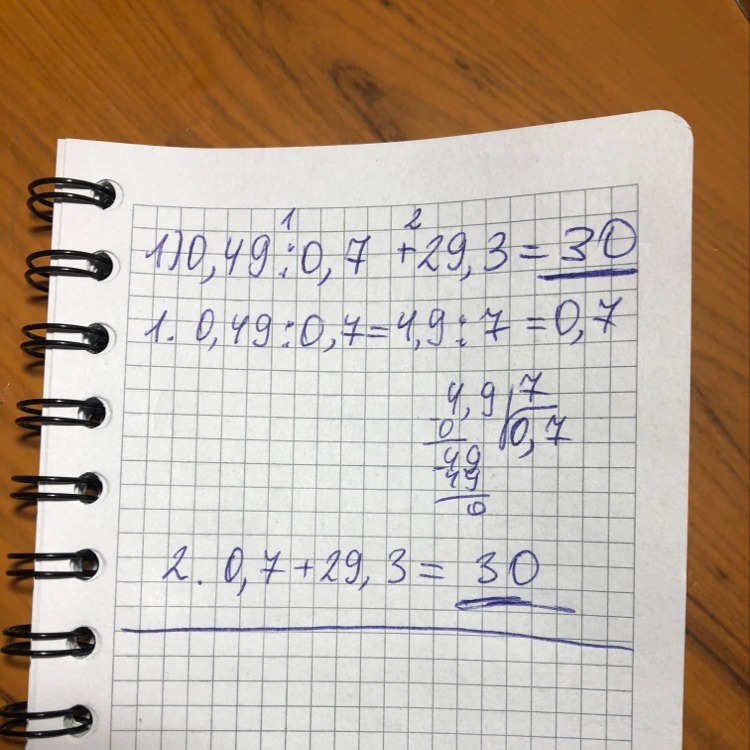 1 2
1) 0,49 : 0,7 + 29,3 = 30
1. 0,49 : 0,7 = 4,9 : 7 = 0,7
4,9 7
0 0,7
49
49
0
2. 0,7 + 29,3 = 30